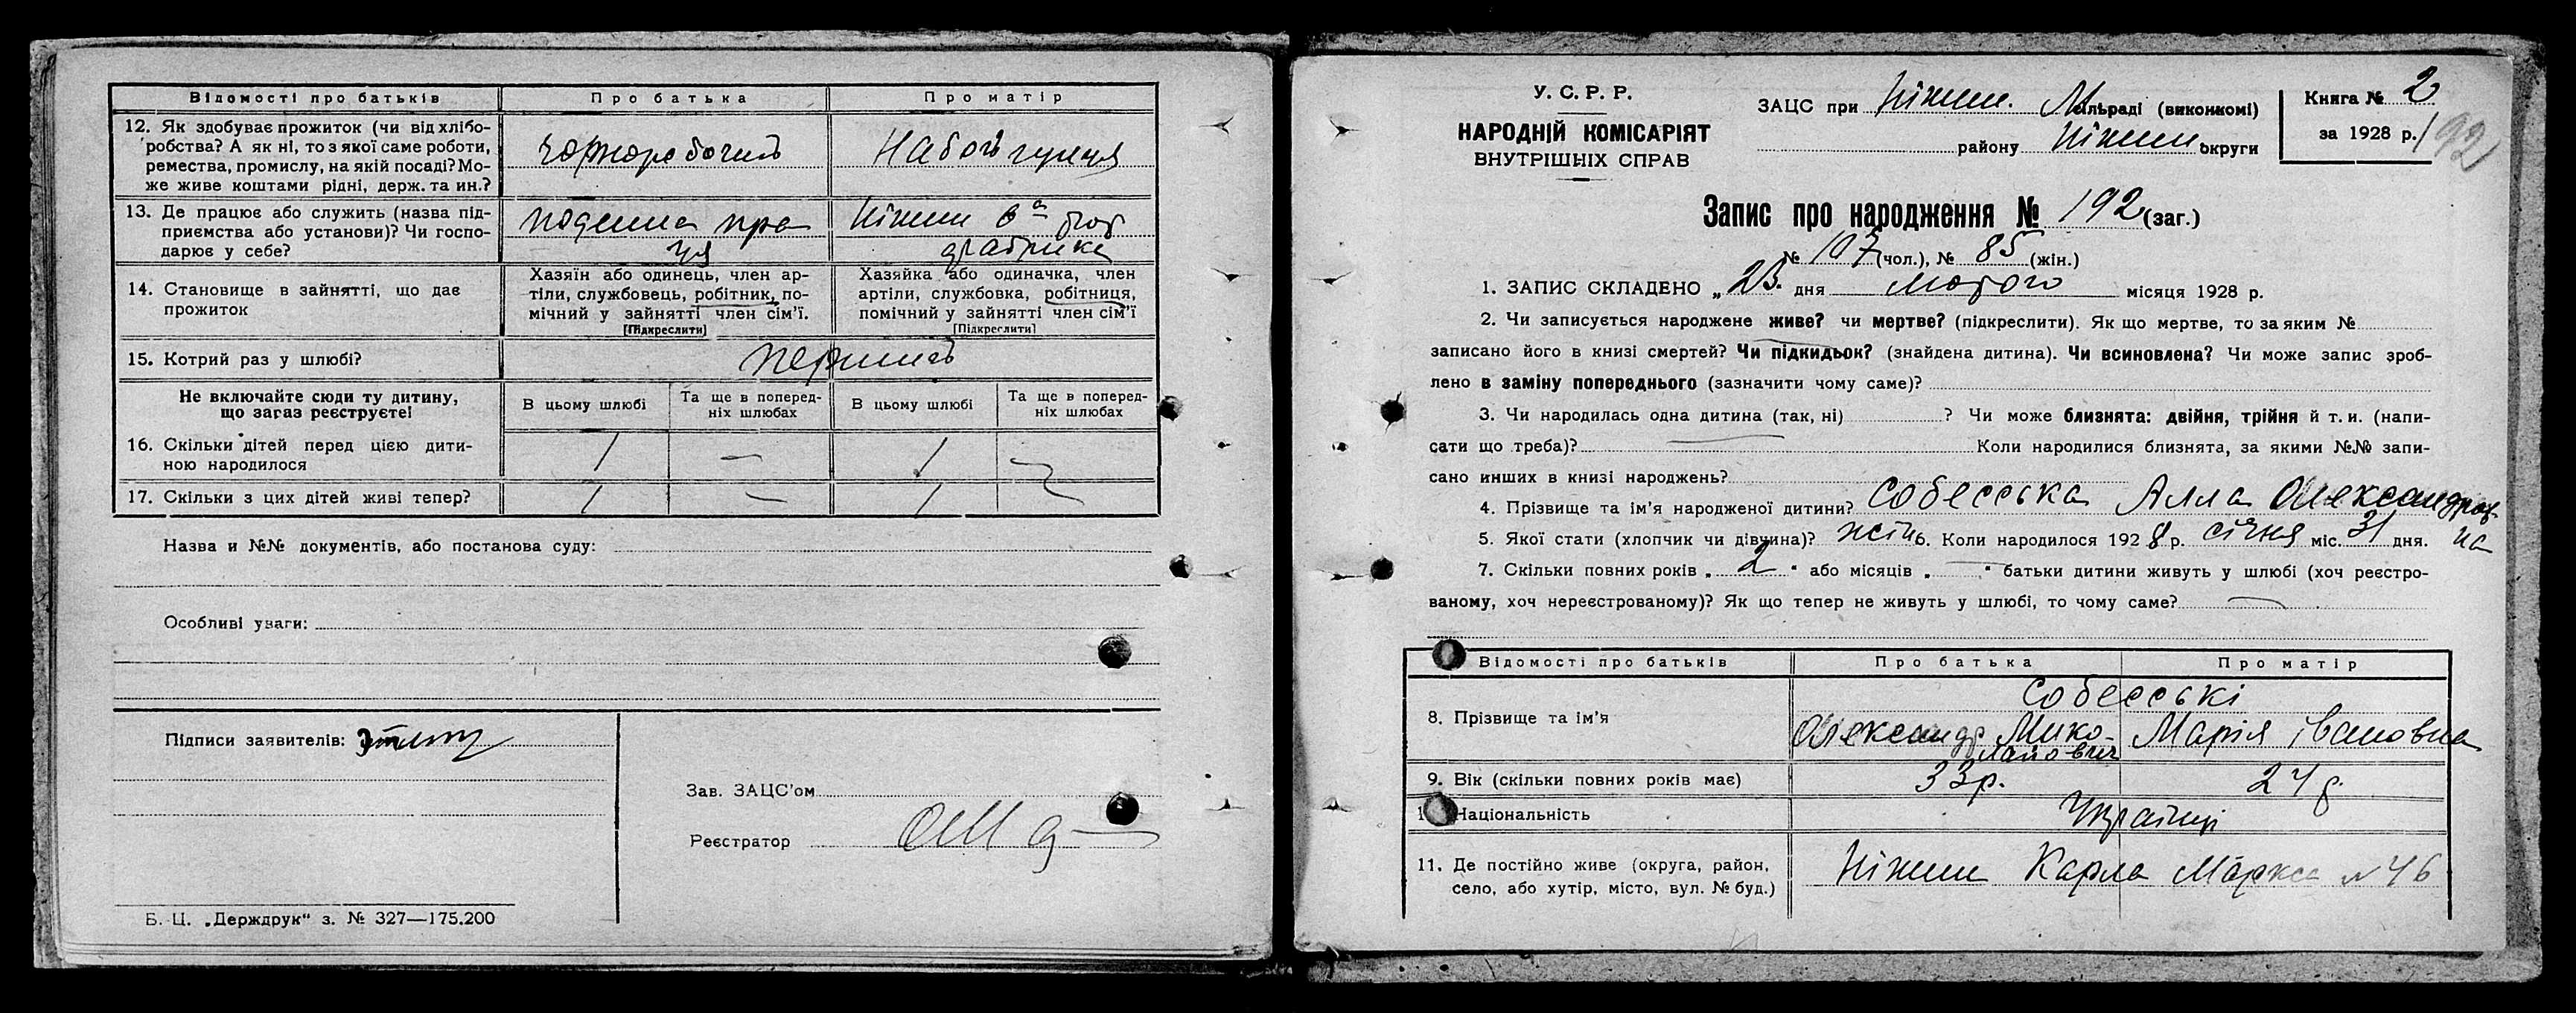 Відомості про батьків
Про батька
Про матір
12. Як здобуває прожиток (чи від хлібо-
робства? А як ні, то з якої саме роботи,
ремества, промислу, на якій посаді? Мо-
же живе коштами рідні, держ. та ин.?
Чорноробочий
13. Де працює або служить (назва під-
приємства або установи)? Чи госпо-
дарює у себе?
поденна пра
ця
Ніжин
фабрика
14. Становище в зайнятті, що дає
прожиток
Хазяїн або одинець, член ар-
тіли, службовець, робітник, по-
мічний у зайнятті член сім'ї.
[Підкреслити]
Хазяйка або одиначка, член
артіли, службовка, робітниця,
помічний у зайнятті член сім'ї
[Підкреслити]
15. Котрий раз у шлюбі?
перший
Не включайте сюди ту дитину,
що зараз реєструєте!
В цьому шлюбі
Та ще в поперед-
ніх шлюбах
В цьому шлюбі
Та ще в поперед-
ніх шлюбах
16. Скільки дітей перед цією дити-
ною народилося
1 — 1 —
17. Скільки з цих дітей живі тепер?
1 — 1 —
Назва и №№ документів, або постанова суду:
Особливі уваги:
Підписи заявителів:
Зав. ЗАЦС'ом
Реєстратор
Б. Ц. „Держдрук" з. № 327—175.200
У. С. Р. Р.
НАРОДНІЙ КОМІСАРІЯТ
ВНУТРІШНІХ СПРАВ
ЗАЦС при Ніжин. М сільраді (виконкомі)
району Ніжин округи
Книга № 2
за 1928 р.
192
Запис про народження № 192 (заг.)
№ 107 (чол.), № 85 (жін.)
1. ЗАПИС СКЛАДЕНО „ дня лютого місяця 1928 р.
2. Чи записується народжене живе? чи мертве? (підкреслити). Як що мертве, то за яким №
записано його в книзі смертей? Чи підкидьок? (знайдена дитина). Чи всиновлена? Чи може запис зроб-
лено в заміну попереднього (зазначити чому саме)?
3. Чи народилась одна дитина (так, ні) ? Чи може близнята: двійня, трійня й т. и. (напи-
сати що треба)? — Коли народилися близнята, за якими №№ запи-
сано инших в книзі народжень?
4. Прізвище та ім'я народженої дитини? Собесська Алла Олександрів
на
5. Якої стати (хлопчик чи дівчина)? жін 6. Коли народилося 1928 р. січня міс. 31 дня.
7. Скільки повних років „ 2 " або місяців „ — " батьки дитини живуть у шлюбі (хоч реєстро-
ваному, хоч нереєстрованому)? Як що тепер не живуть у шлюбі, то чому саме? —
Відомості про батьків
Про батька
Про матір
8. Прізвище та ім'я
Собесські
Олександр Мико-
лайович
Марія Івановна
9. Вік (скільки повних років має)
33 р.
24 р.
Національність
Українці
11. Де постійно живе (округа, район,
село, або хутір, місто, вул. № буд.)
Ніжин Карла Маркса № 46